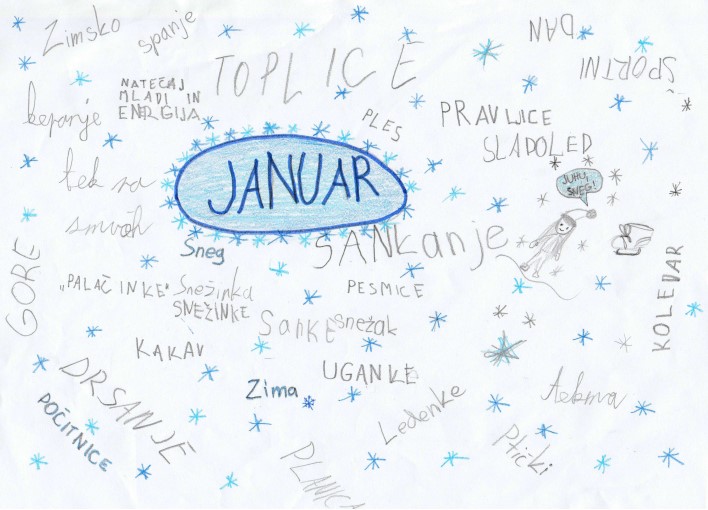 Zimsko
spanje
TOPLICE
DAN
ŠPORTNI
kepanje
NATEČAJ
MLADI IN
ENERGIJA
PLES
PRAVLJICE
SLADOLED
tek na
smučeh
JANUAR
JUHU,
SNEG!
Sneg
SANKanje
GORE
KOLEDAR
„PALAČINKE“
Snežinka
SNEŽINKE
PESMICE
Sanke
snežak
KAKAV
DRSANJE
UGANKE
Zima
POČITNICE
Ledenke
tekma
Ptički
PLANICA